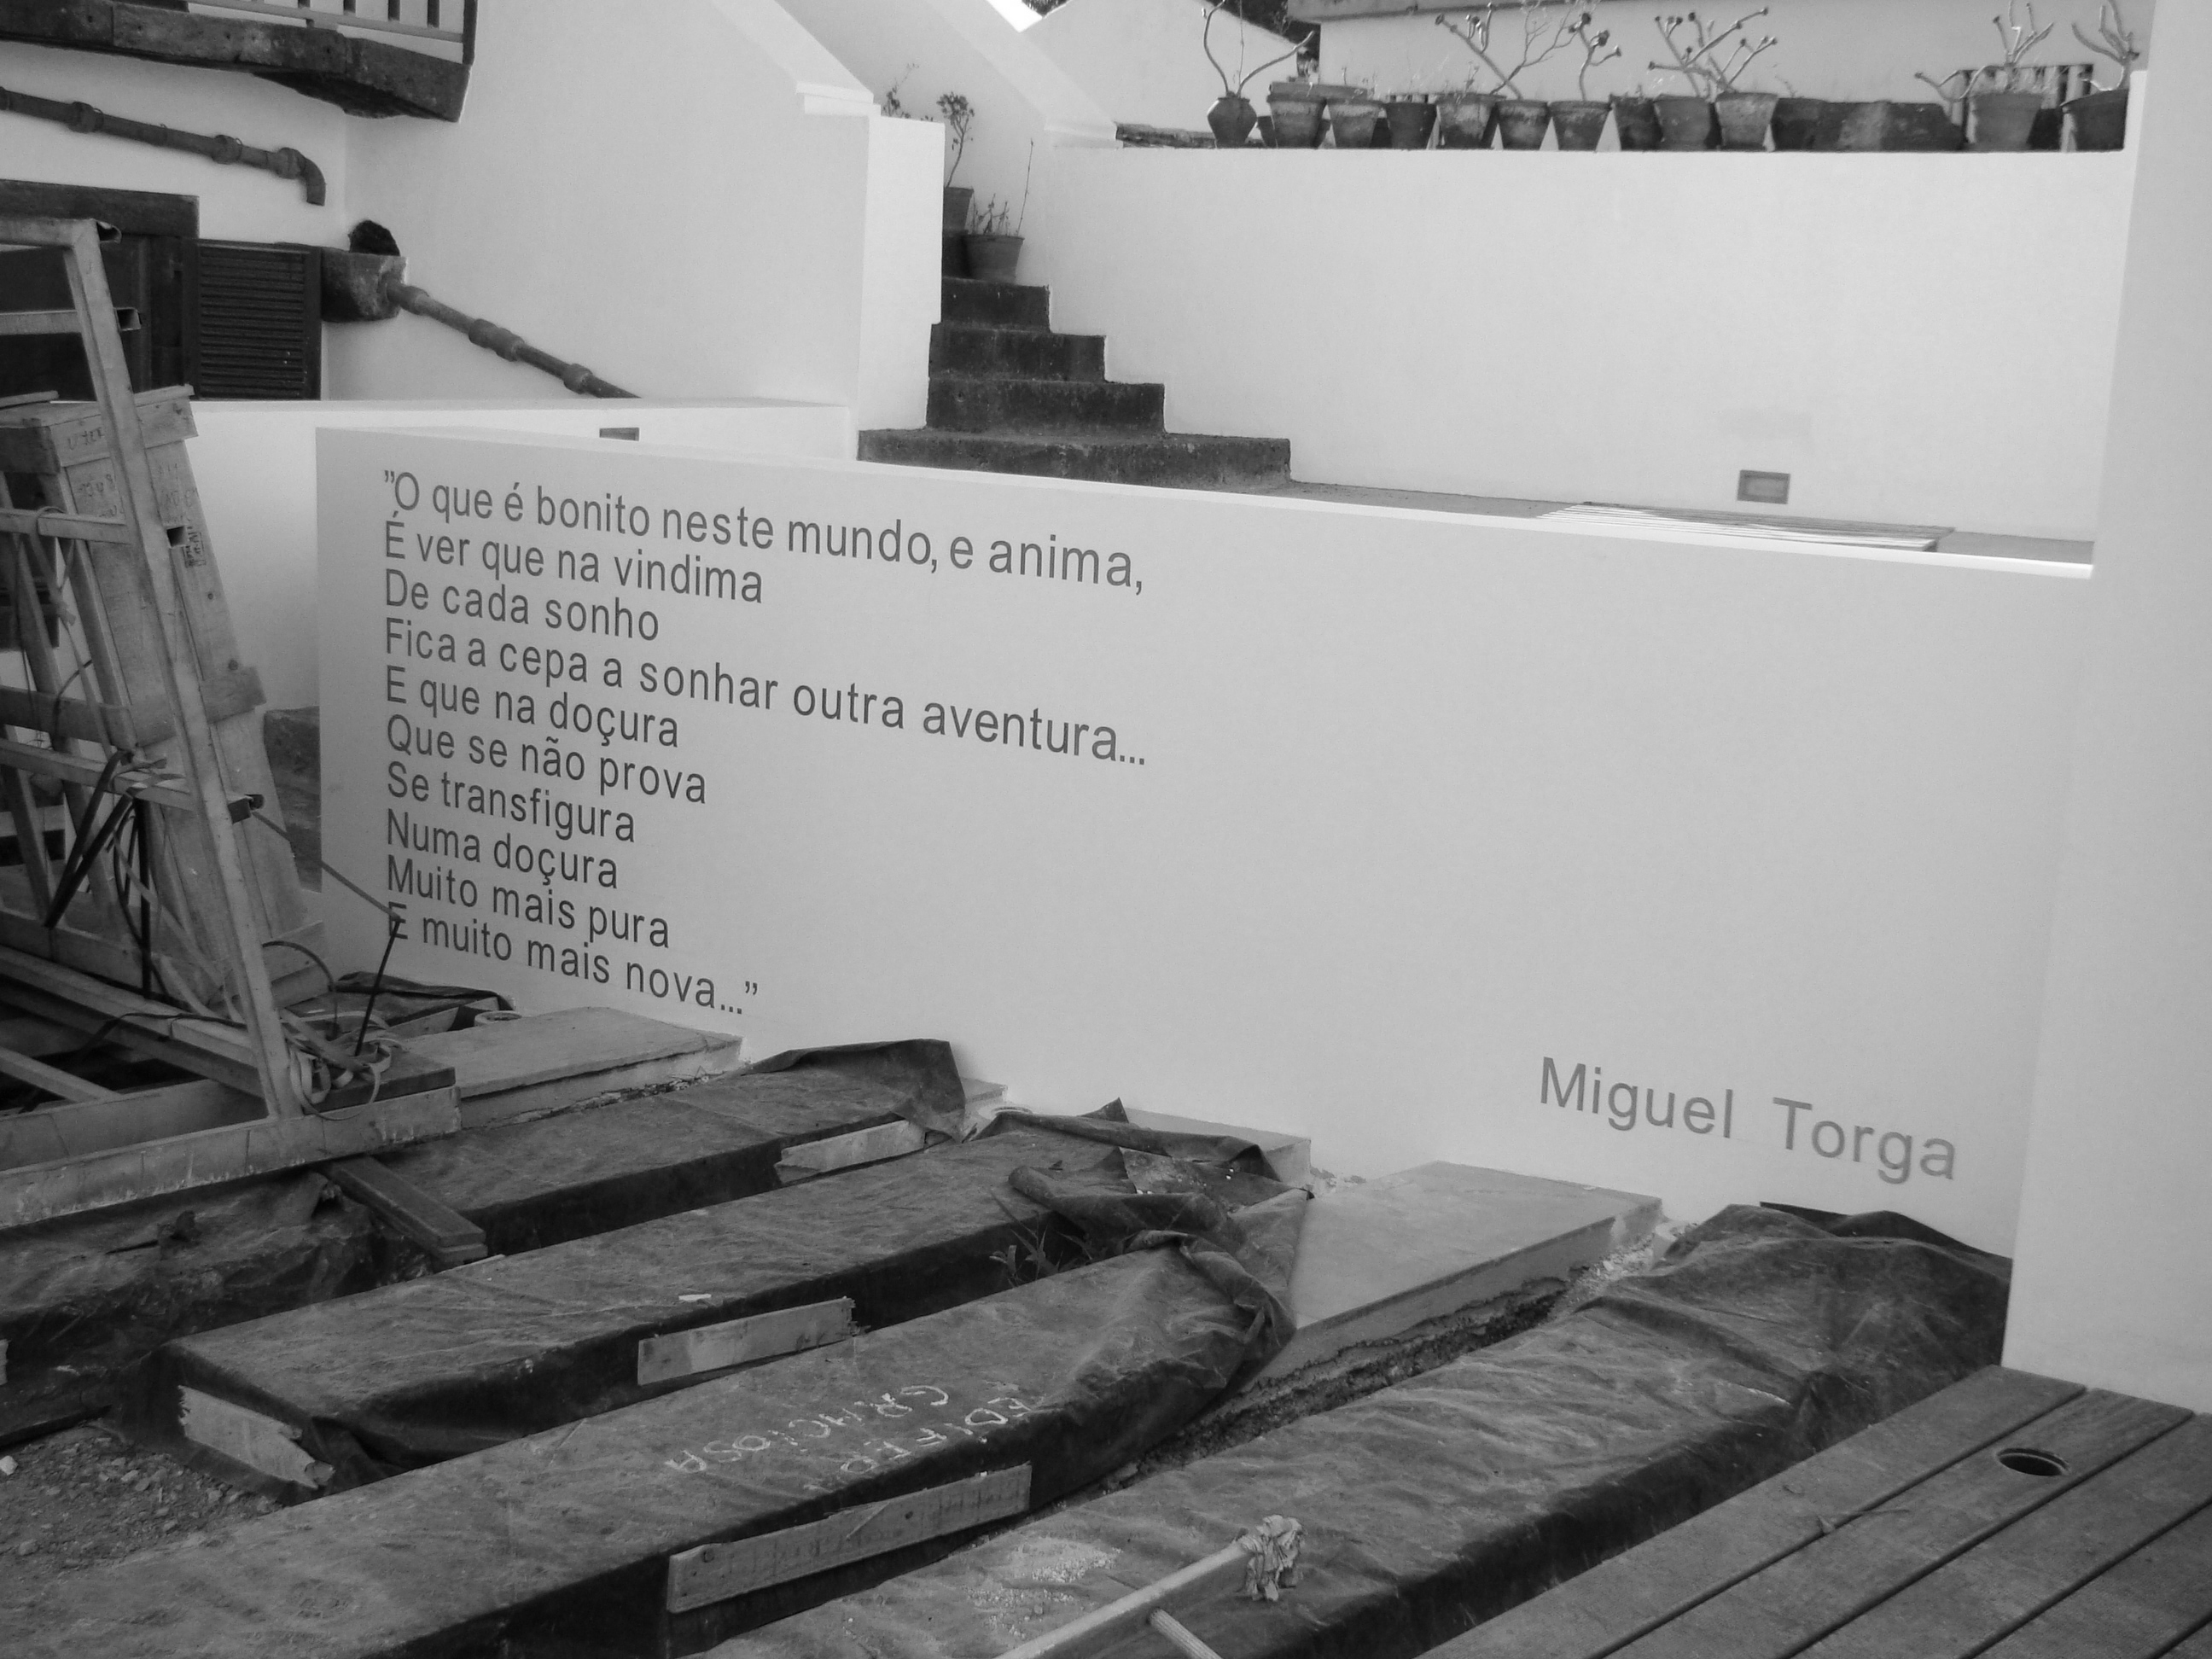 ”O que é bonito neste mundo, e anima,
É ver que na vindima
De cada sonho
Fica a cepa a sonhar outra aventura...
E que na doçura
Que se não prova
Se transfigura
Numa doçura
Muito mais pura
E muito mais nova...”
Miguel Torga